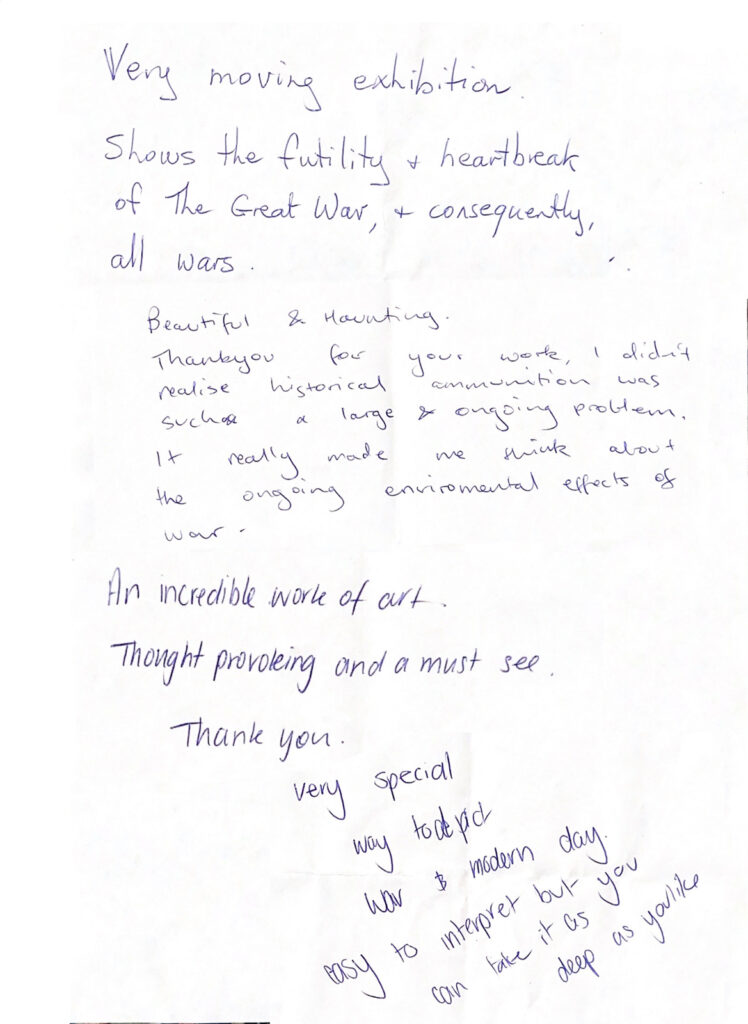 Very moving exhibition.
Shows the futility + heartbreak
of The Great War, + consequently,
all wars.
Beautiful & Haunting.
Thankyou for your work, I didn't
realise historical ammunition was
such a large & ongoing problem.
It really made me think about
the ongoing enviromental effects of
war.
An incredible work of art.
Thought provoking and a must see.
Thank you.
very special
way to depict
war & modern day.
easy to interpret but you
can take it as
deep as you like